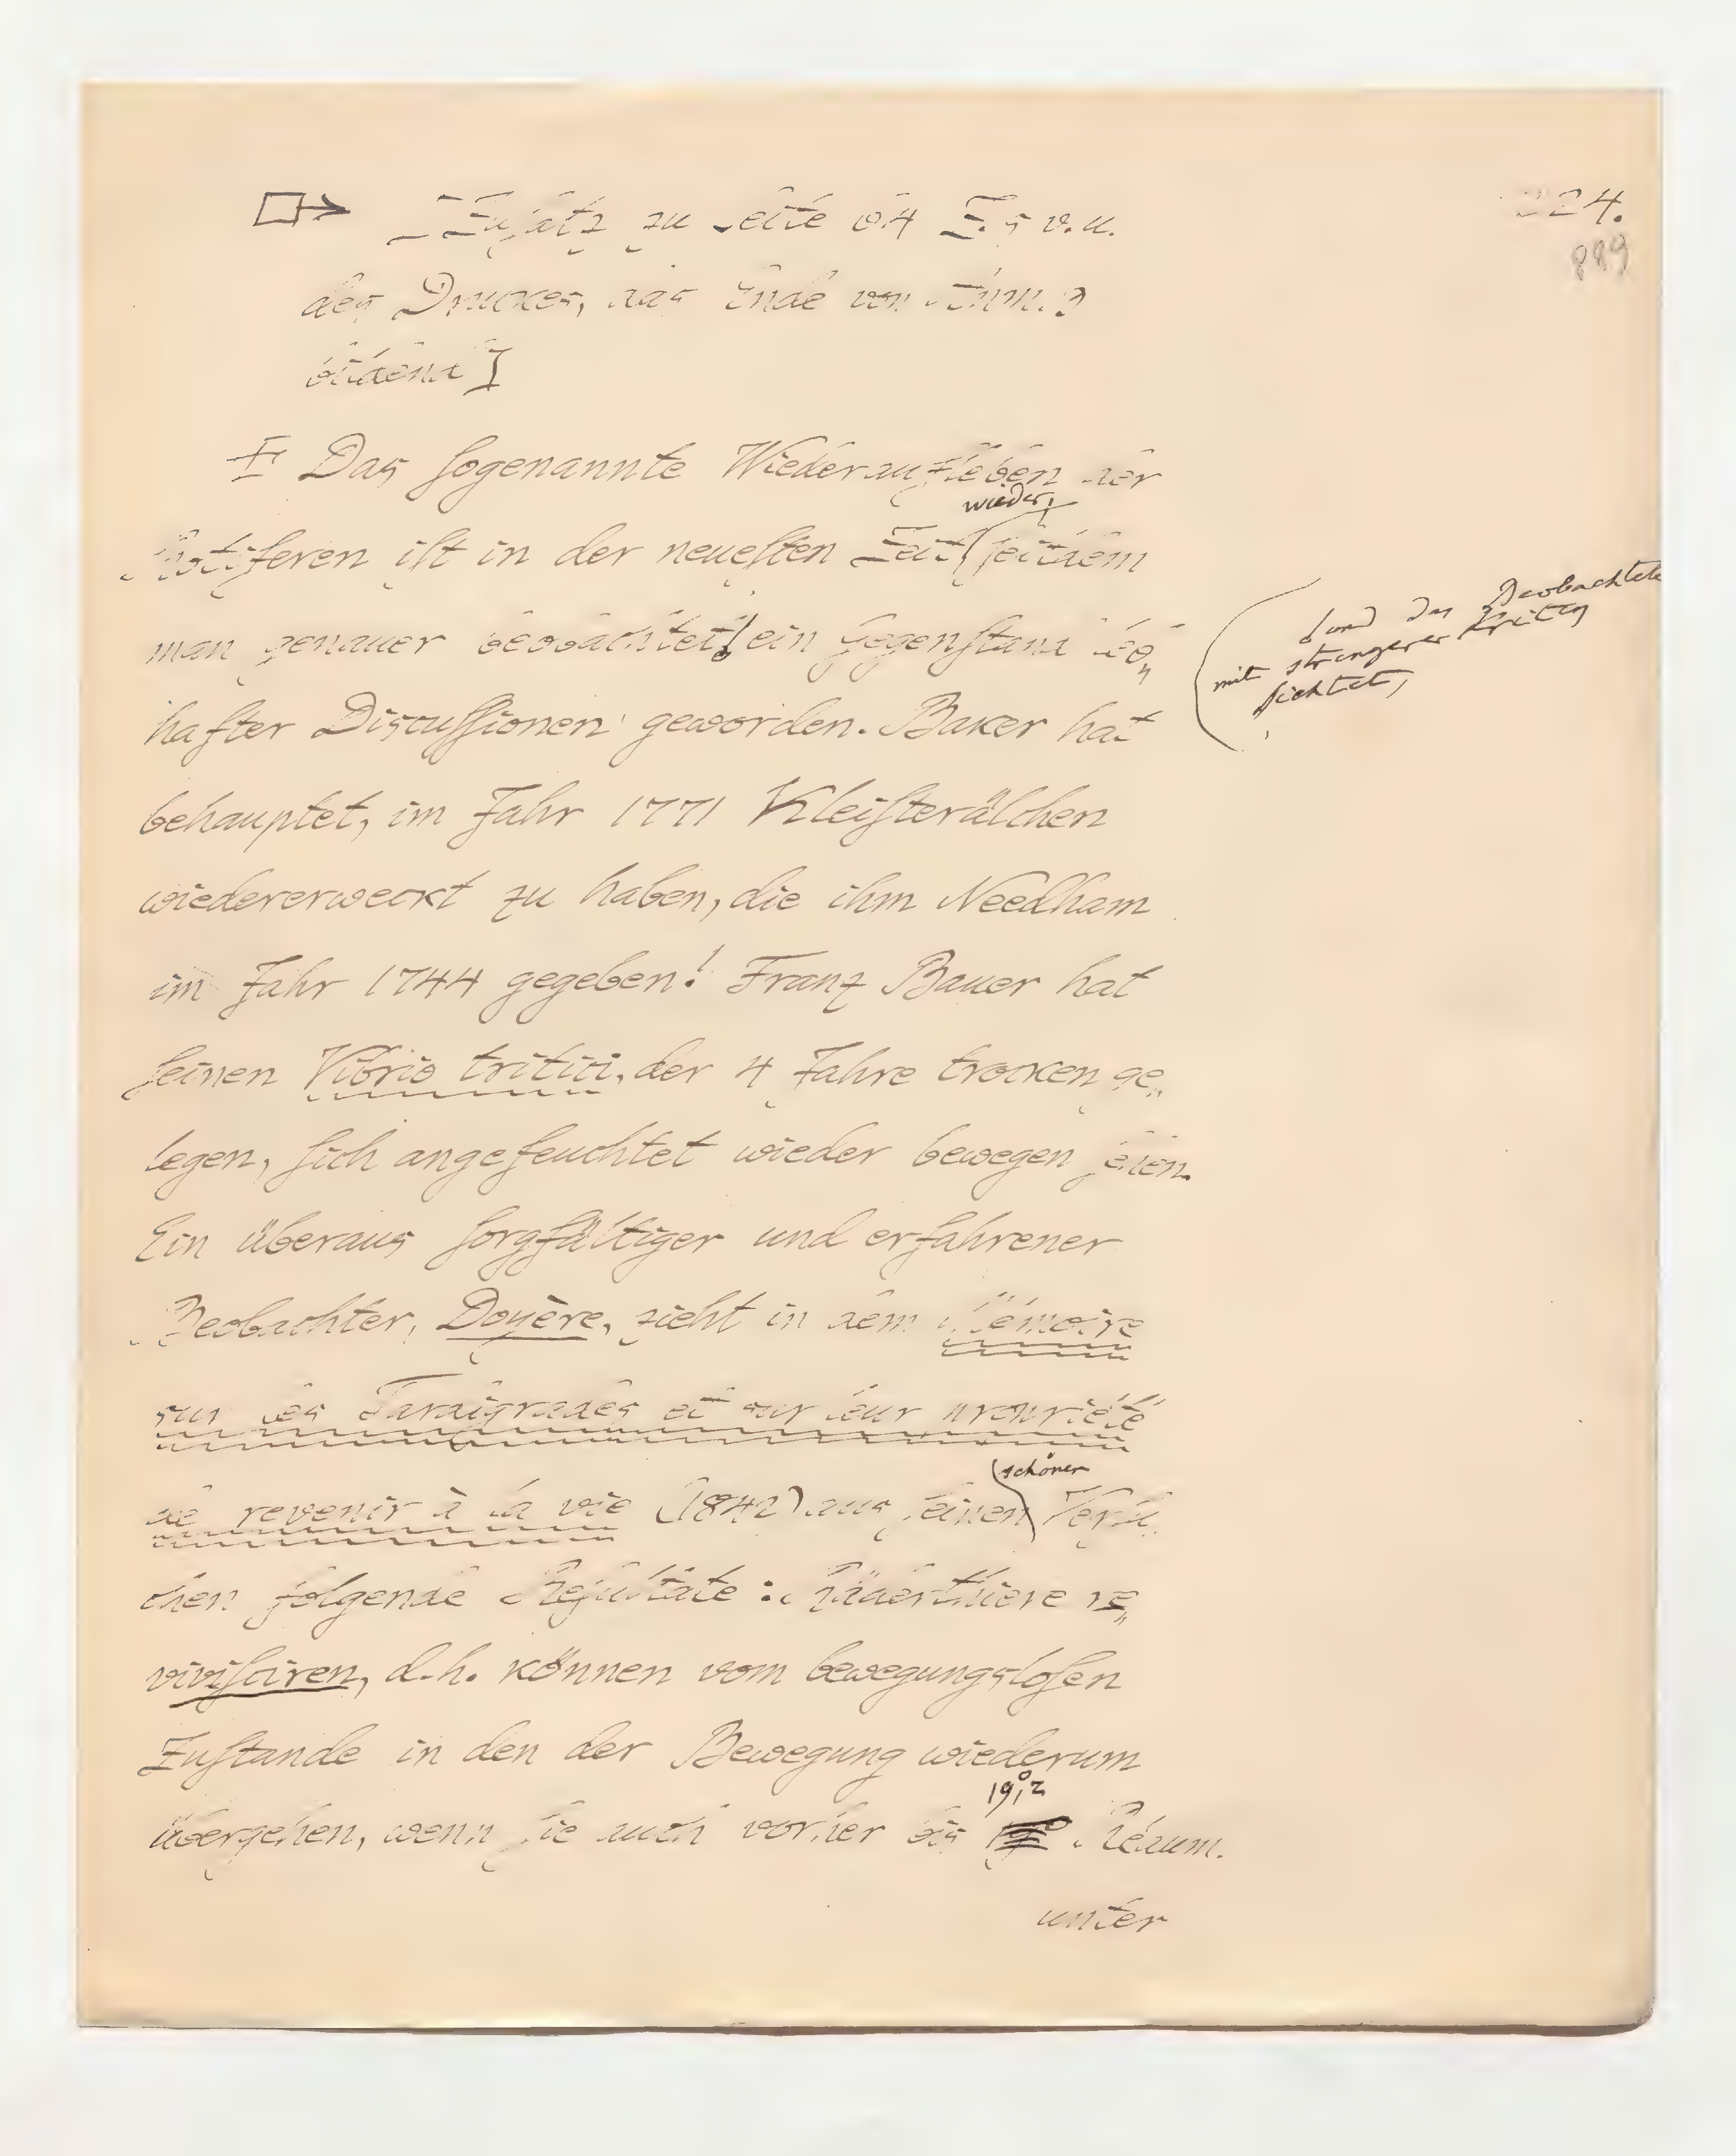 [Zusatz zu Seite 64 Z. 5 v. u.
des Druckes, das Ende von Anm. 3
bildend]
224.
889
Das ſogenannte Wiederaufleben der
Rotiferen iſt in der neueſten Zeit wieder, ſeitdem
man genauer beobachtet und das Beobachtete
mit strengerer Kritik
ſichtet, ein Gegenſtand leb„
hafter Discuſſionen geworden. Baker hat
behauptet, im Jahr 1771 Kleiſterälchen
wiedererweckt zu haben, die ihm Needham
im Jahr 1744 gegeben! Franz Bauer hat
ſeinen Vibrio tritici, der 4 Jahre trocken ge„
legen, ſich angefeuchtet wieder bewegen ſehen.
Ein überaus ſorgfältiger und erfahrener
Beobachter, Doyère, zieht in dem Mémoire
sur les Tardigrades et sur leur propriété
de revenir à la vie (1842) aus ſeinen schönen Verſu„
chen folgende Reſultate: Räderthiere re„
viviſciren, d. h. können vom bewegungsloſen
Zuſtande in den der Bewegung wiederum
übergehen, wenn ſie auch vorher bis 19°,2 Réaum.
unter